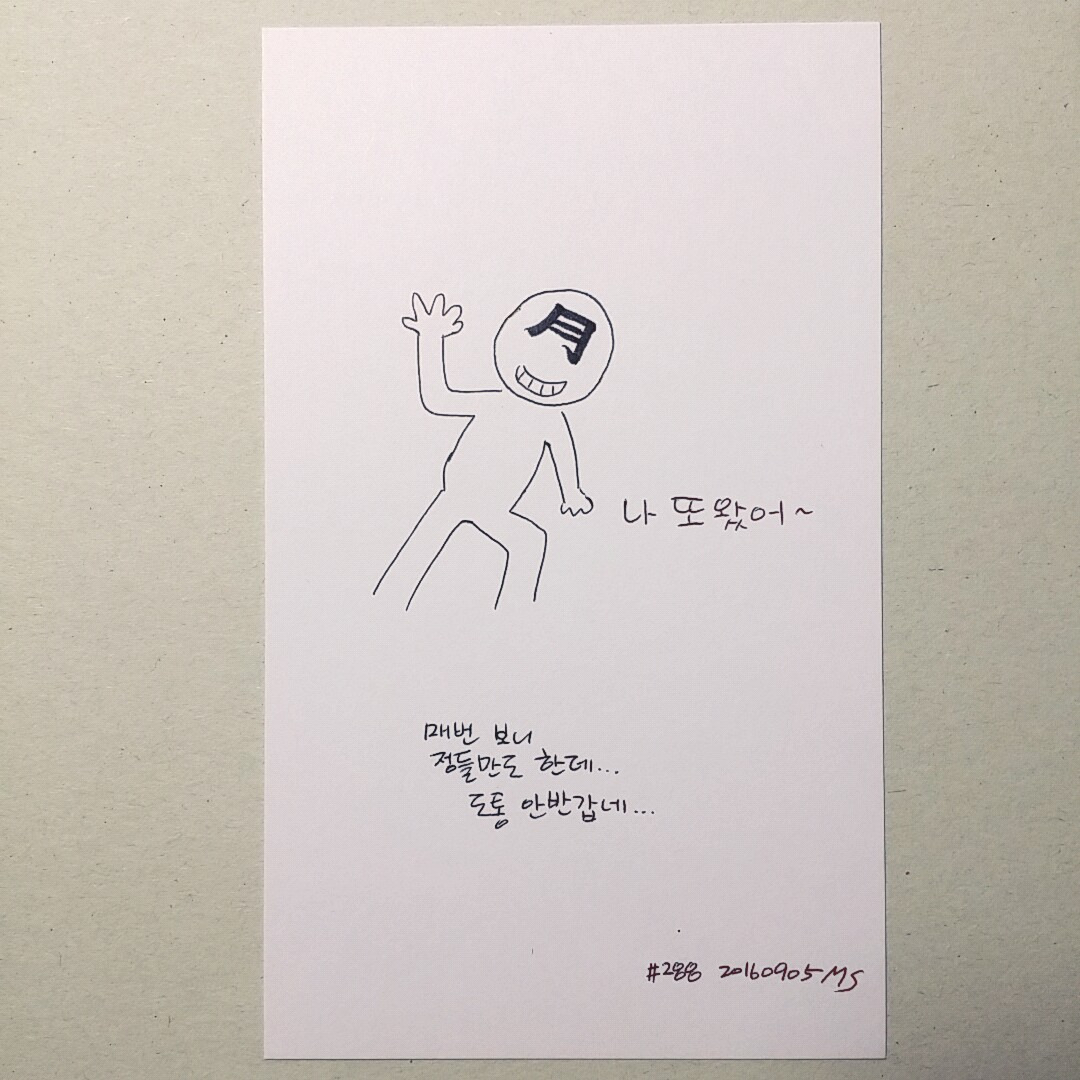 月
나 또 왔어~
매번 보니
정들만도 한데...
도통 안반갑네...
#288 20160905 MS